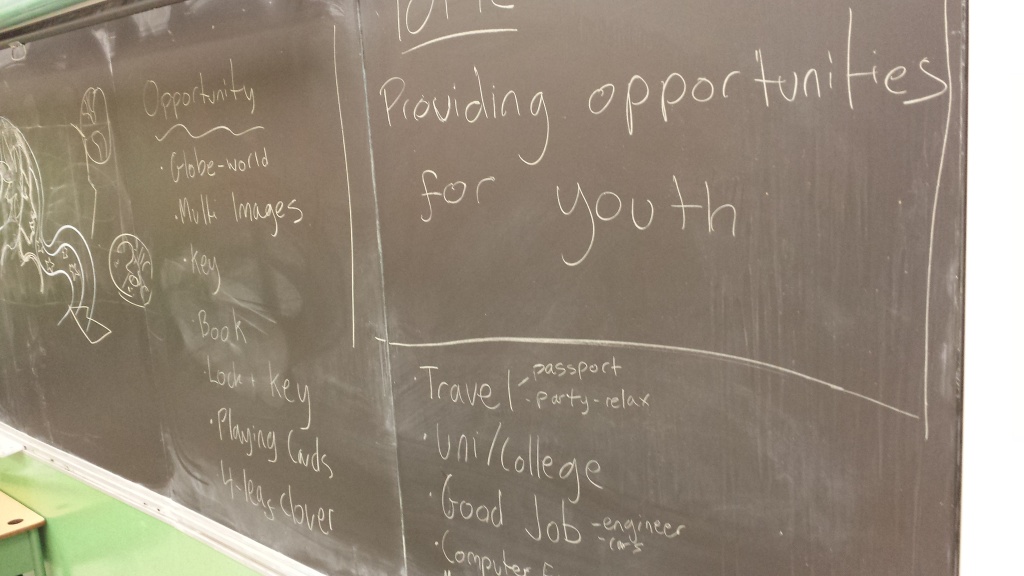 Opportunity
· Globe-world
· Multi Images
· Key
Book
· Lock + key
· Playing Cards
4-leas clover
Providing opportunities
for youth
· Travel - passport
- party-relax
· Uni/College
· Good Job - engineer
- cars
· Computer E